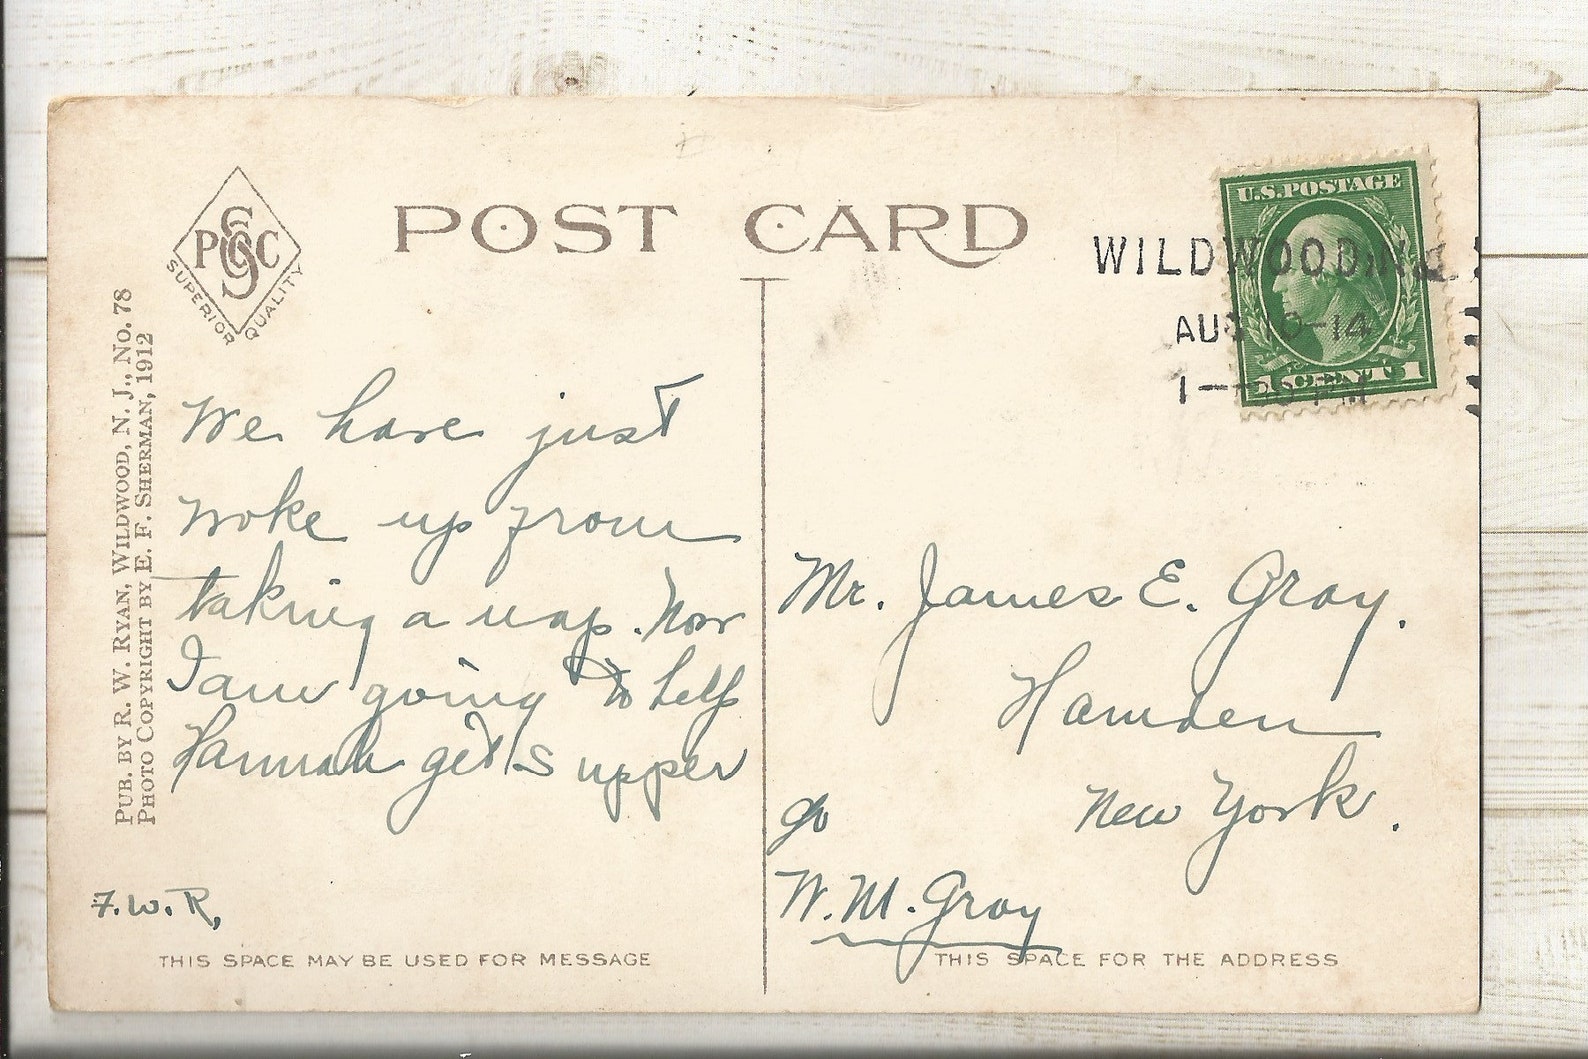 POST CARD
PSC
SUPERIOR QUALITY
PUB. BY R. W. RYAN, WILDWOOD, N. J., No. 78
PHOTO COPYRIGHT BY E. F. SHERMAN, 1912
We have just
woke up from
taking a nap. Now
I am going to help
Hannah get supper
F.W.R.
THIS SPACE MAY BE USED FOR MESSAGE
U.S. POSTAGE
1 CENT 1
WILDWOOD, N.J.
AUG 10-14
1 PM
Mr. James E. Gray.
Hamden
New York.
c/o
W. M. Gray
THIS SPACE FOR THE ADDRESS